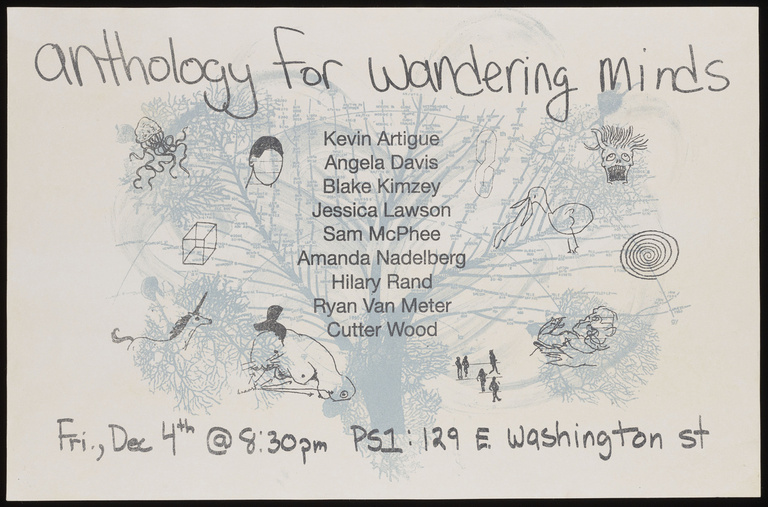 anthology for wandering minds
Kevin Artigue
Angela Davis
Blake Kimzey
Jessica Lawson
Sam McPhee
Amanda Nadelberg
Hilary Rand
Ryan Van Meter
Cutter Wood
Fri., Dec 4th @ 8:30pm PS1: 129 E. Washington st